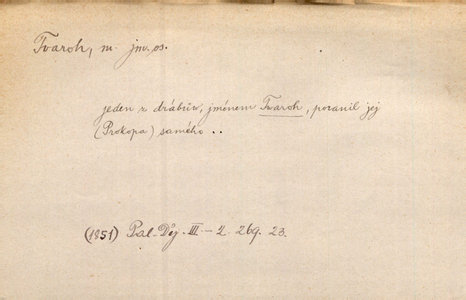 Tvaroh, m. jm. os.
jeden z drábův, jménem Tvaroh, poranil jej
(Prokopa) samého ..
(1851) Pal. Děj. III-2. 269. 23.